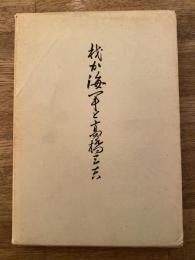 我か海軍と高橋三吉